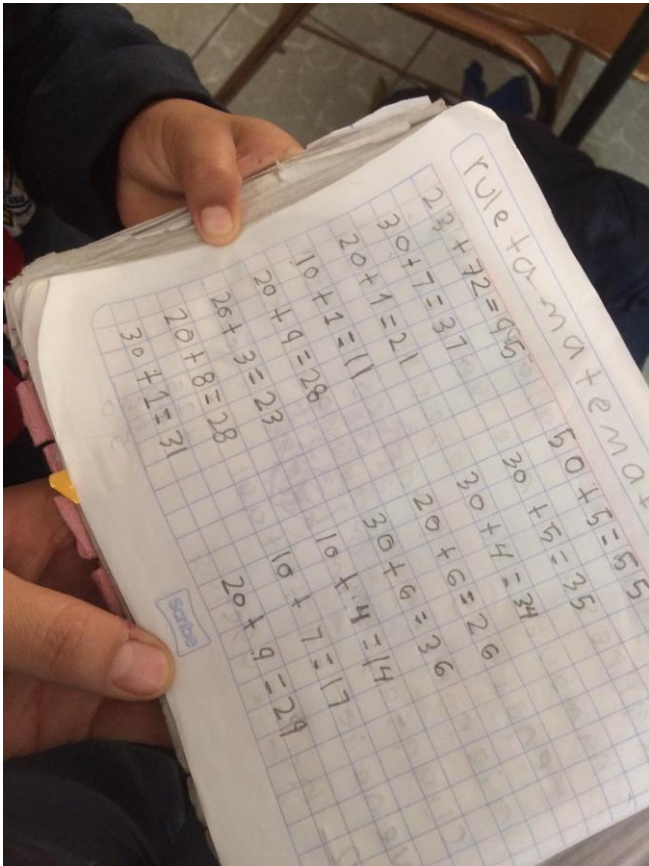 ruleta matemat
23 + 72 = 95
30 + 7 = 37
20 + 1 = 21
10 + 1 = 11
20 + 9 = 28
20 + 3 = 23
20 + 8 = 28
30 + 1 = 31
50 + 5 = 55
30 + 5 = 35
30 + 4 = 34
20 + 6 = 26
30 + 6 = 36
10 + 4 = 14
10 + 7 = 17
20 + 9 = 29
Scribe